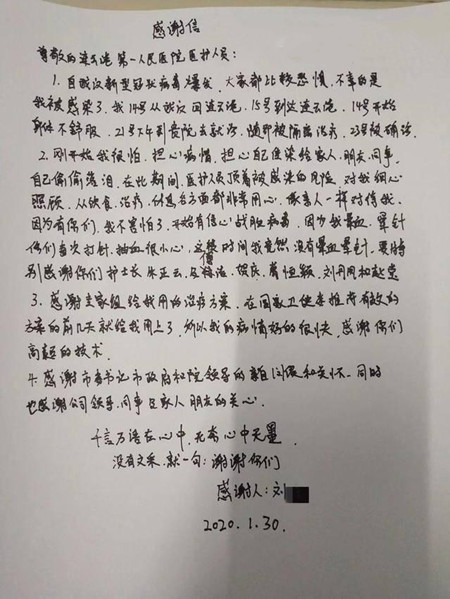 感谢信
尊敬的连云港第一人民医院医护人员:
1. 自武汉新型冠状病毒爆发,大家都比较恐惧,不幸的是
我被感染了,我14号从武汉回连云港,15号到达连云港,14号开始
身体不舒服,21号下午到贵院去就诊,随即被隔离治疗,23号被确诊,
2. 刚开始我很怕,担心病情,担心自己传染给家人,朋友,同事,
自己偷偷落泪,在此期间,医护人员顶着被感染的风险,对我细心
照顾,从饮食,治疗,休息各方面都非常用心,像亲人一样对待我,
因为有你们,我不害怕了,开始有信心战胜病毒,因为我晕血,晕针
你们每次打针,抽血很小心,这段时间我竟然没有晕血晕针,要特
别感谢你们护士长朱正云,刘丹丹
3. 感谢专家组给我用的治疗方案,在国家卫健委推荐有效的
方案的前几天就给我用上了,所以我的病情好的很快,感谢你们
高超的技术,
4. 感谢市委书记市政府和院领导的亲自问候和关怀,同时
也感谢公司领导,同事及家人朋友的关心,
千言万语在心中,无奈心中无墨
没有文采,就一句:谢谢你们
感谢人:刘
2020.1.30.